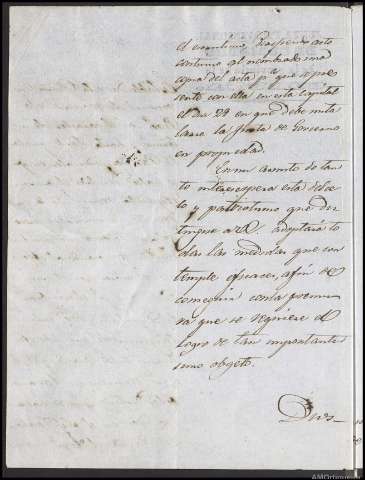 el escrutinio. Respecto acto
continuo al nombrado una
copia del acta p.ª que se pre
sente con ella en esta capital
el dia 29 en que debe insta
larse la Junta de Gobierno
en propiedad.
En un asunto de tan
to interes espera esta del ce
lo y patriotismo que dis
tingue a V. adoptará to
das las medidas que con
temple eficaces, afin de
conseguir con la premu
ra que se requiere el
logro de tan importanti
simo objeto.
Dios
AMOrtim